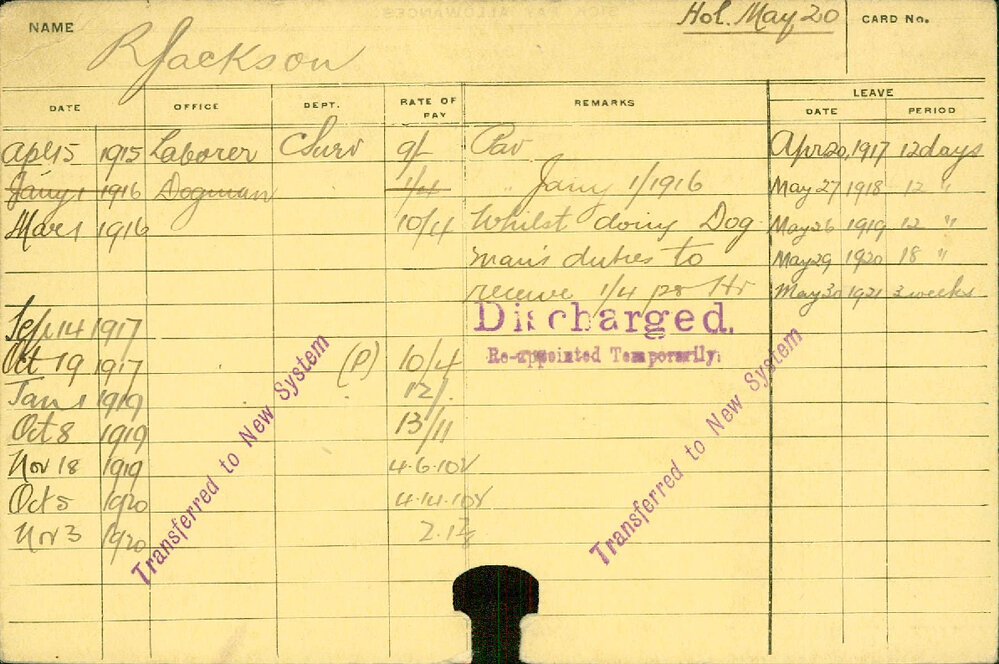 Hol. May 20
NAME R Jackson CARD No.
DATE OFFICE DEPT. RATE OF PAY REMARKS LEAVE
DATE PERIOD
Apl 15 1915 Laborer Surv 9/- Pav Apr 20, 1917 12 days
Jany 1 1916 Dogman 1/4 " Jany 1/1916 May 27 1918 12 "
Mar 1 1916 10/4 Whilst doing Dog May 26 1919 12 "
man's duties to May 29 1920 18 "
receive 1/4 per Hr May 30 1921 3 weeks
Sep 14 1917 Discharged.
Oct 19 1917 (P) 10/4 Re-appointed Temporarily.
Jan 1 1919 12/.
Oct 8 1919 13/11
Nov 18 1919 4.6.10
Oct 5 1920 4.14.10
Nov 3 1920
Transferred to New System
Transferred to New System